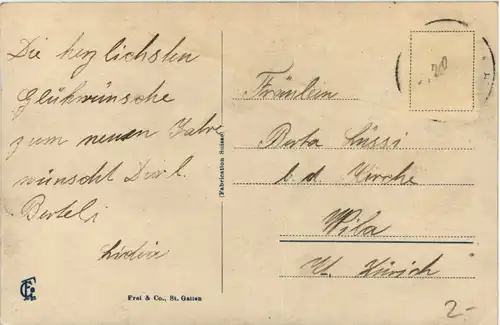 Die herzlichsten
Glükwünsche
zum neuen Jahre
wünscht Dir l.
Berteli
Lidia
(Fabrication Suisse)
Fräulein
Berta Lüssi
b. d Kirche
Wila
Kt. Zürich
Frei & Co., St. Gallen
2-